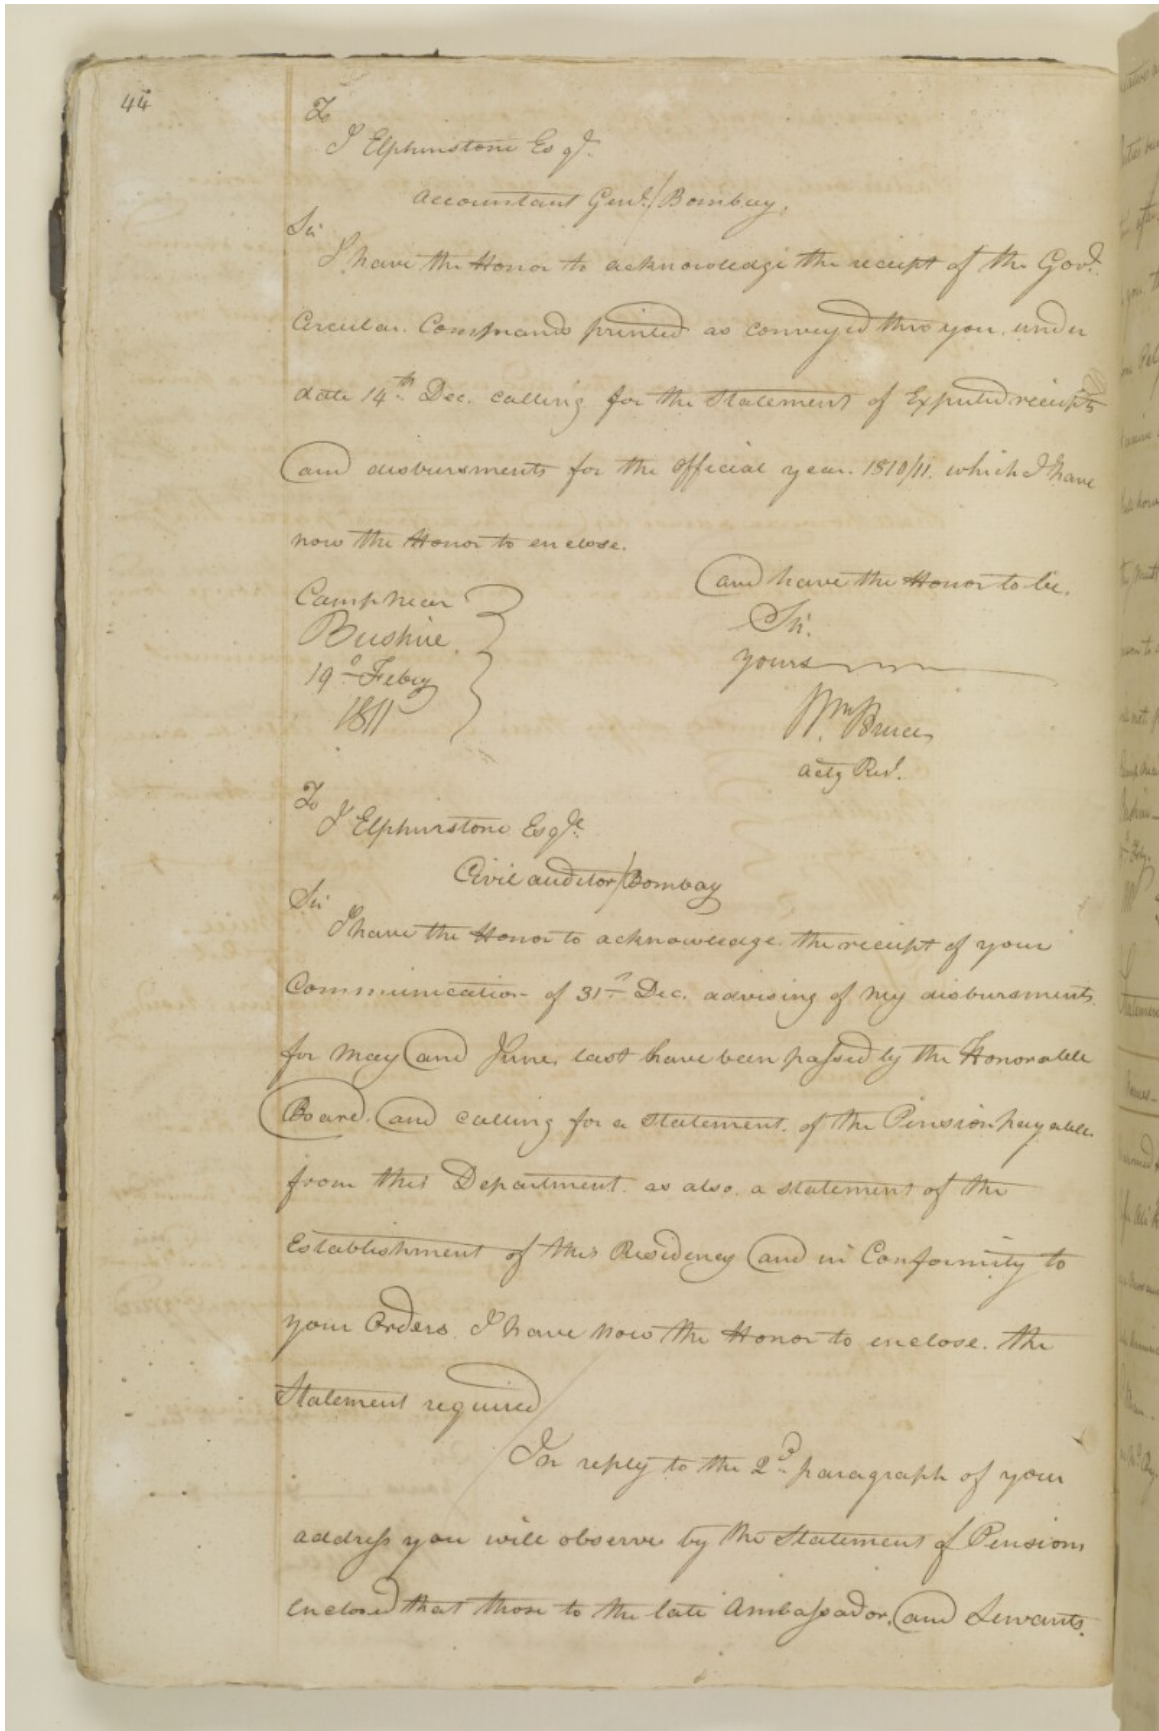 44
To
J Elphinstone Esqr.
Accountant Genl./Bombay,
Sir
I have the Honor to acknowledge the receipt of the Govt.
Circular Commands printed as conveyed thro you under
date 14th. Dec. calling for the Statement of Expected receipts
and disbursments for the official year. 1810/11. which I have
now the Honor to enclose.
and have the Honor to be.
Camp near
Bushire.
19th Feby
1811
Sir.
yours
Wm. Bruce
actg Rest.
To
J Elphinstone Esqre.
Civil auditor/Bombay
Sir
I have the Honor to acknowledge the receipt of your
Communication of 31st Dec. advising of my disbursments
for May and June last have been passed by the Honorable
Board. and calling for a statement. of the Pension payable
from this Department. as also. a statement of the
Establishment of this Residency and in Conformity to
your Orders. I have now the Honor to enclose. the
Statement required
In reply to the 2d. paragraph of your
address you will observe by the Statement of Pensions
enclosed that those to the late Ambassador, and Servants.